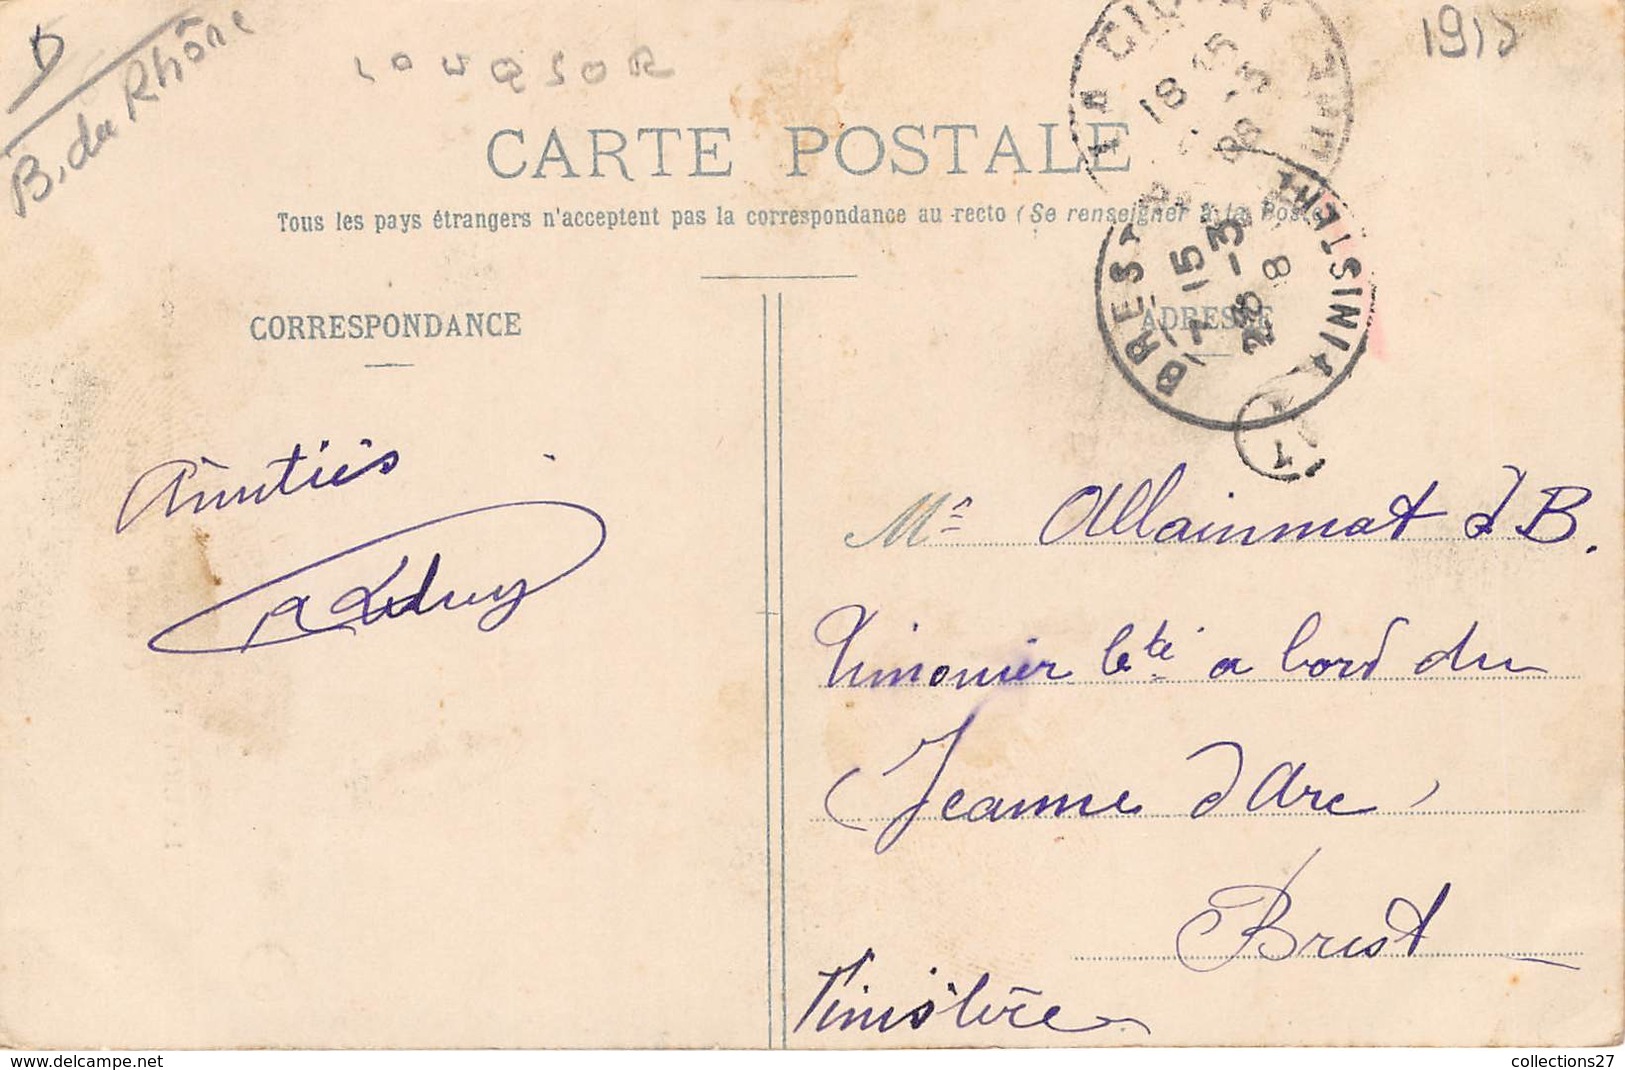 D
B. du Rhône
LOUQSOR
CARTE POSTALE
Tous les pays étrangers n'acceptent pas la correspondance au recto (Se renseigner à la Poste)
LA CIOTAT
18 15
-3
08
BREST FINISTERE
17 15
28 -3
8
CORRESPONDANCE
ADRESSE
Amitiés
Mr Allainmat d B.
Timonier bté a bord du
Jeanne d'Arc
Brest
Finistère
collections27